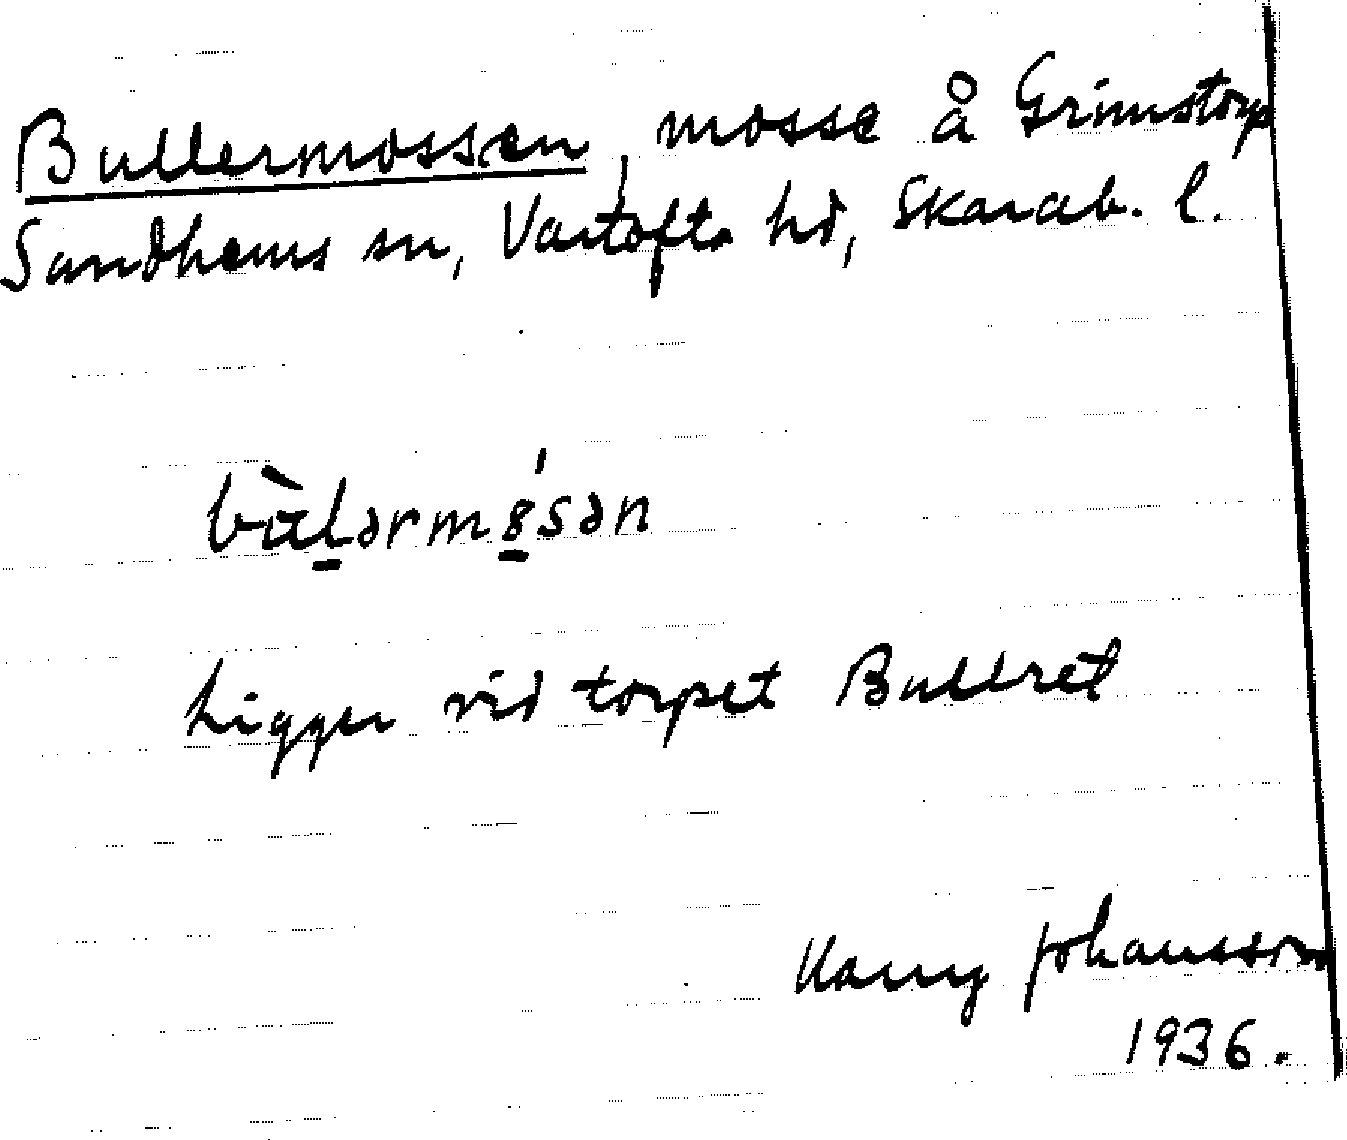 Bullermossen, mosse å Grimstorp
Sandhems sn, Vartofta hd, Skarab. l.
Ligger vid torpet Bullret
Harry Johansson
1936.